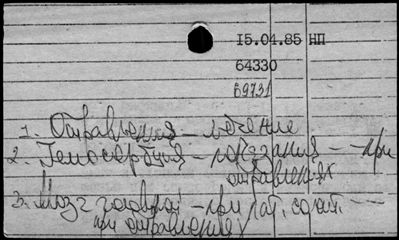 15.04.85 НП
64330
69731
1. Отравления – лечение
2. Гемосорбция – показания – – при
отравлениях
3. Мозг головной – при пат. сост. – – –
при отравлениях